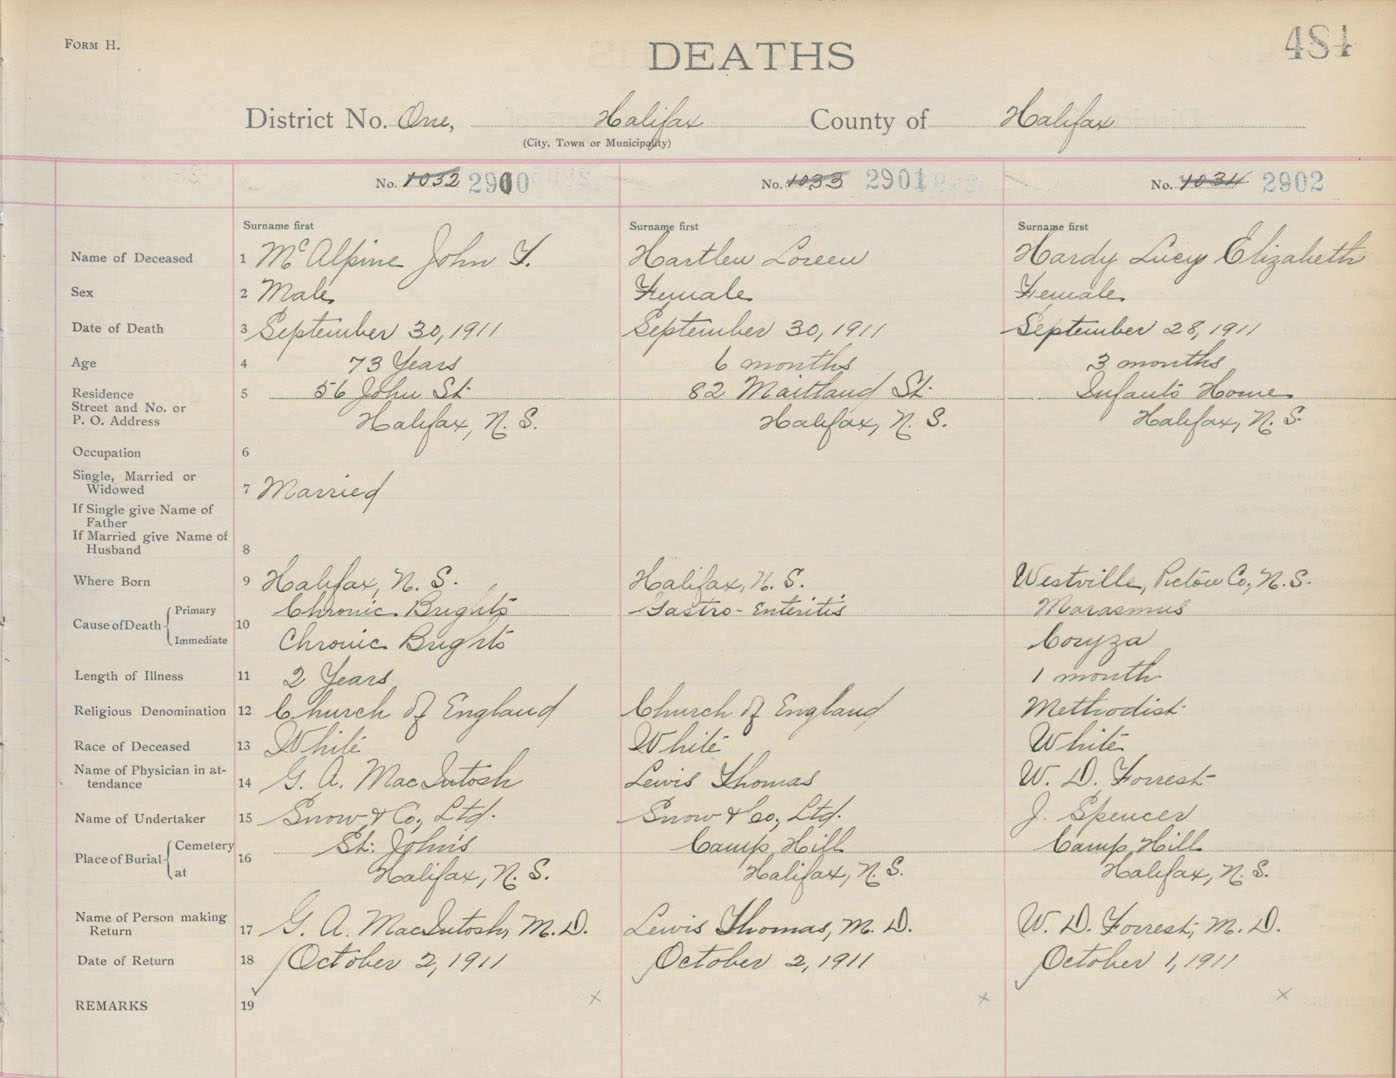 FORM H.
DEATHS
484
District No. One, Halifax County of Halifax
(City, Town or Municipality)
No. 1032 2900 No. 1033 2901 No. 1034 2902
Surname first Surname first Surname first
Name of Deceased 1 McAlpine John Hartlen Loreen Hardy Lucy Elizabeth
Sex 2 Male Female Female
Date of Death 3 September 30, 1911 September 30, 1911 September 28, 1911
Age 4 73 Years 6 months 3 months
Residence 5 56 John St. 82 Maitland St. Infants Home
Street and No. or
P. O. Address Halifax, N. S. Halifax, N. S. Halifax, N. S.
Occupation 6
Single, Married or
Widowed 7 Married
If Single give Name of
Father
If Married give Name of
Husband 8
Where Born 9 Halifax, N. S. Halifax, N. S. Westville, Pictou Co, N. S.
Cause of Death Primary 10 Chronic Brights Gastro-Enteritis Marasmus
Immediate Chronic Brights Coryza
Length of Illness 11 2 Years 1 month
Religious Denomination 12 Church of England Church of England Methodist
Race of Deceased 13 White White White
Name of Physician in at-
tendance 14 G. A. MacIntosh Lewis Thomas W. D. Forrest
Name of Undertaker 15 Snow & Co, Ltd. Snow & Co, Ltd. J. Spencer
Place of Burial Cemetery 16 St. John's Camp Hill Camp Hill
at Halifax, N. S. Halifax, N. S. Halifax, N. S.
Name of Person making
Return 17 G. A. MacIntosh, M. D. Lewis Thomas, M. D. W. D. Forrest, M. D.
Date of Return 18 October 2, 1911 October 2, 1911 October 1, 1911
REMARKS 19 x x x